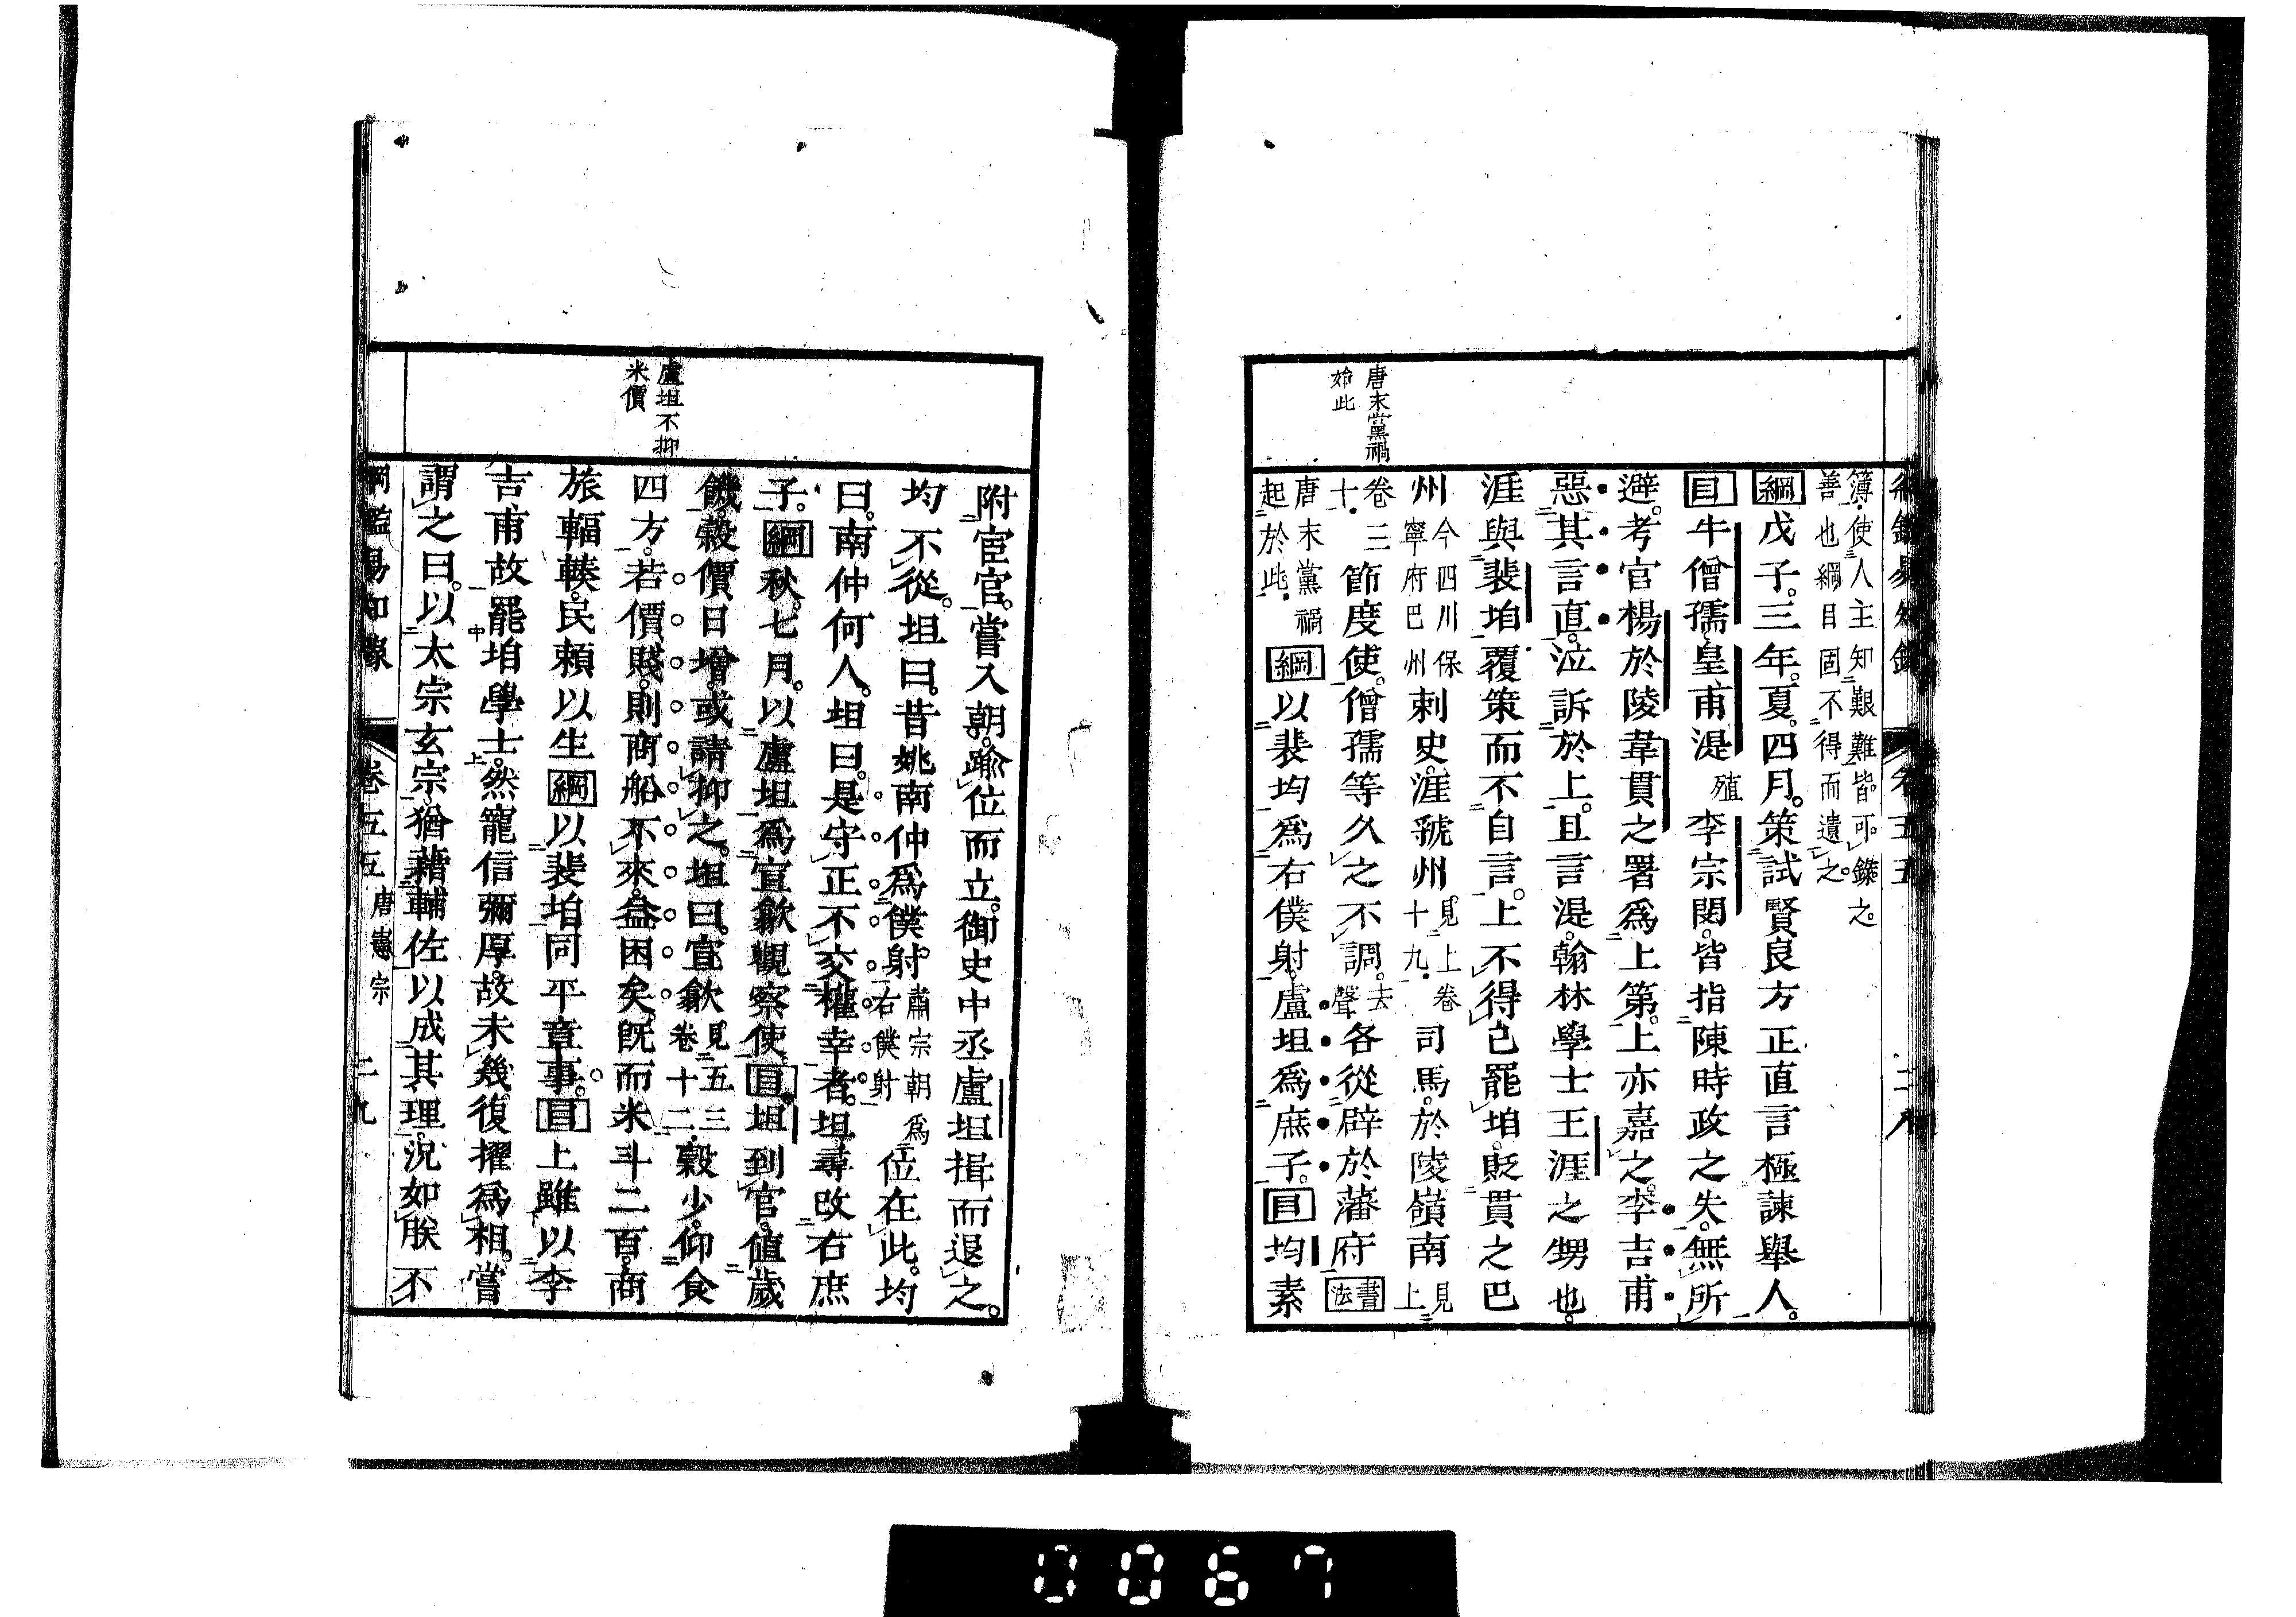 唐末黨禍
始此
簿使人主知艱難皆可錄之
善也綱目固不得而遺之
綱戊子三年夏四月策試賢良方正直言極諫舉人
目牛僧孺皇甫湜殖李宗閔皆指陳時政之失無所
避考官楊於陵韋貫之署爲上第上亦嘉之李吉甫
惡其言直泣訴於上且言湜翰林學士王涯之甥也
涯與裴垍覆策而不自言上不得已罷垍貶貫之巴
州今四川保寧府巴州刺史涯虢州見上卷十九司馬於陵嶺南見上
卷三十節度使僧孺等久之不調去聲各從辟於藩府書法
唐末黨禍起於此綱以裴均爲右僕射盧坦爲庶子目均素
盧坦不抑
米價
附宦官嘗入朝踰位而立御史中丞盧坦揖而退之
均不從坦曰昔姚南仲爲僕射肅宗朝爲右僕射位在此均
曰南仲何人坦曰是守正不交權幸者坦尋改右庶
子綱秋七月以盧坦爲宣歙觀察使目坦到官値歲
饑穀價日增或請抑之坦曰宣歙見五三卷十二穀少仰食
四方若價賤則商船不來益困矣旣而米斗二百商
旅輻輳民賴以生綱以裴垍同平章事目上雖以李
吉甫故罷垍學士然寵信彌厚故未幾復擢爲相嘗
謂之曰以太宗玄宗猶藉輔佐以成其理況如朕不
綱鑑易知錄 卷五五 唐憲宗 二九
0067